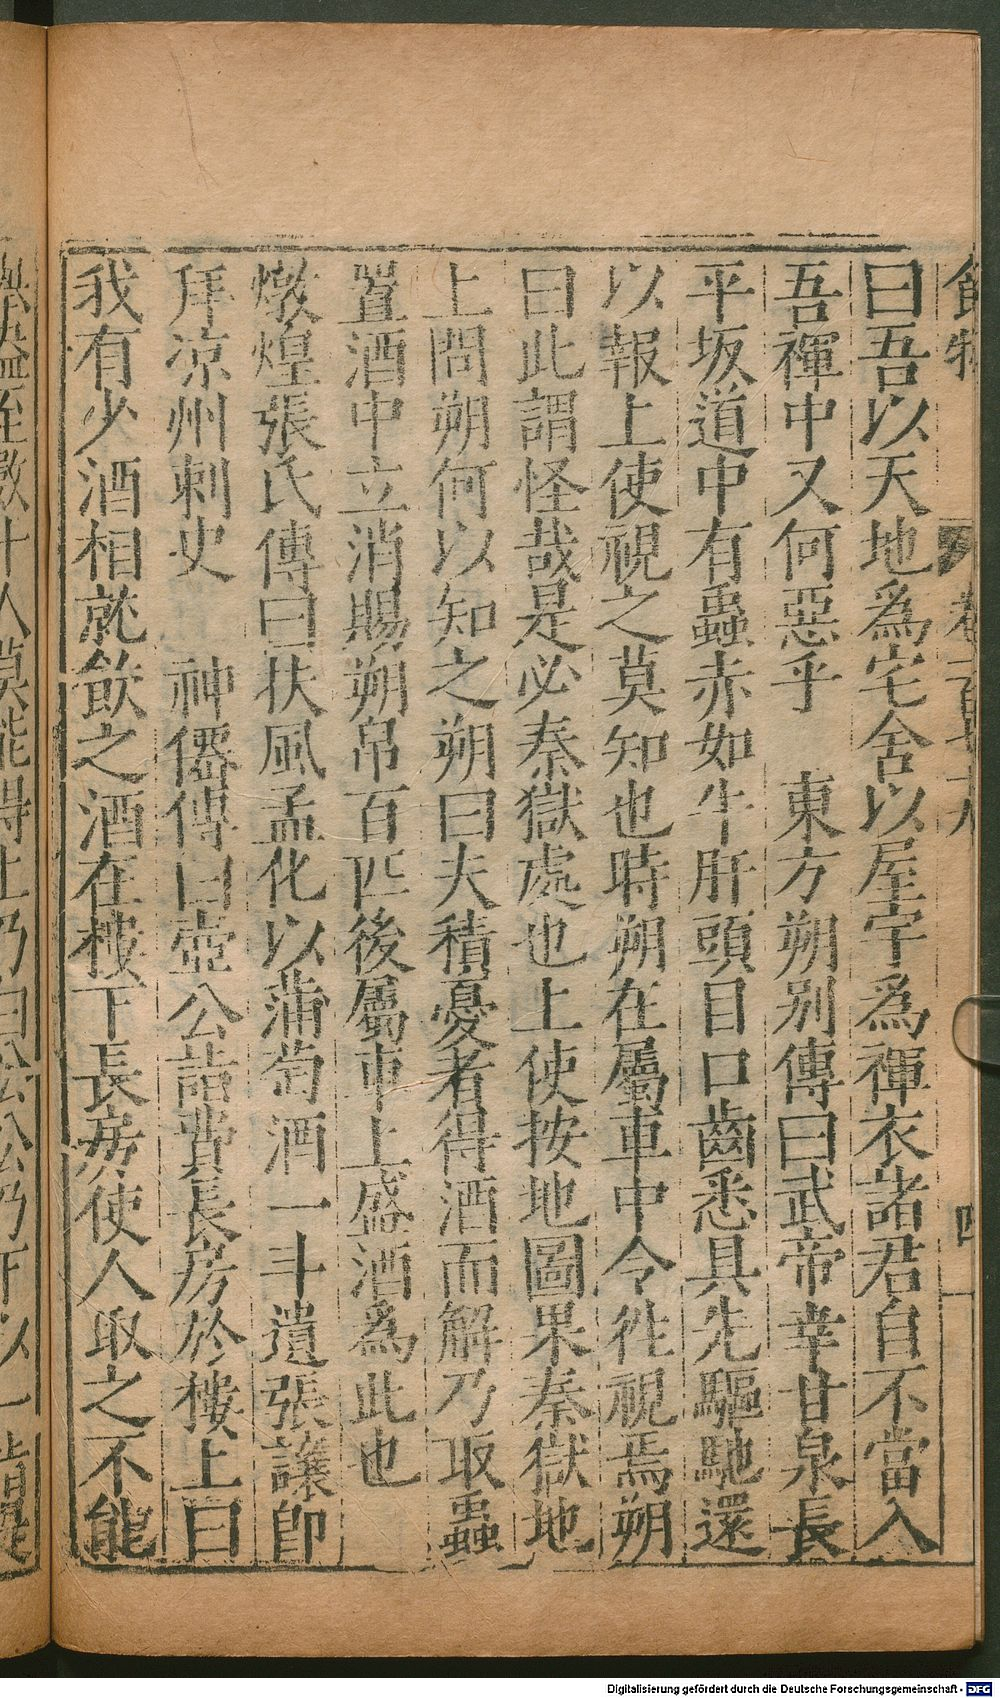 曰吾以天地爲宅舍以屋宇爲褌衣諸君自不當入
吾褌中又何惡乎　東方朔别傳曰武帝幸甘泉長
平坂道中有蟲赤如牛肝頭目口齒悉具先驅馳還
以報上使視之莫知也時朔在屬車中令往視焉朔
曰此謂怪哉是必秦獄處也上使按地圖果秦獄地
上問朔何以知之朔曰夫積憂者得酒而解乃取蟲
置酒中立消賜朔帛百匹後屬車上盛酒為此也
燉煌張氏傳曰扶風孟化以蒲萄酒一斗遺張讓即
拜凉州刺史　神僊傳曰壺公詣費長房於樓上曰
我有少酒相就飲之酒在樓下長房使人取之不能
Digitalisierung gefördert durch die Deutsche Forschungsgemeinschaft - DFG